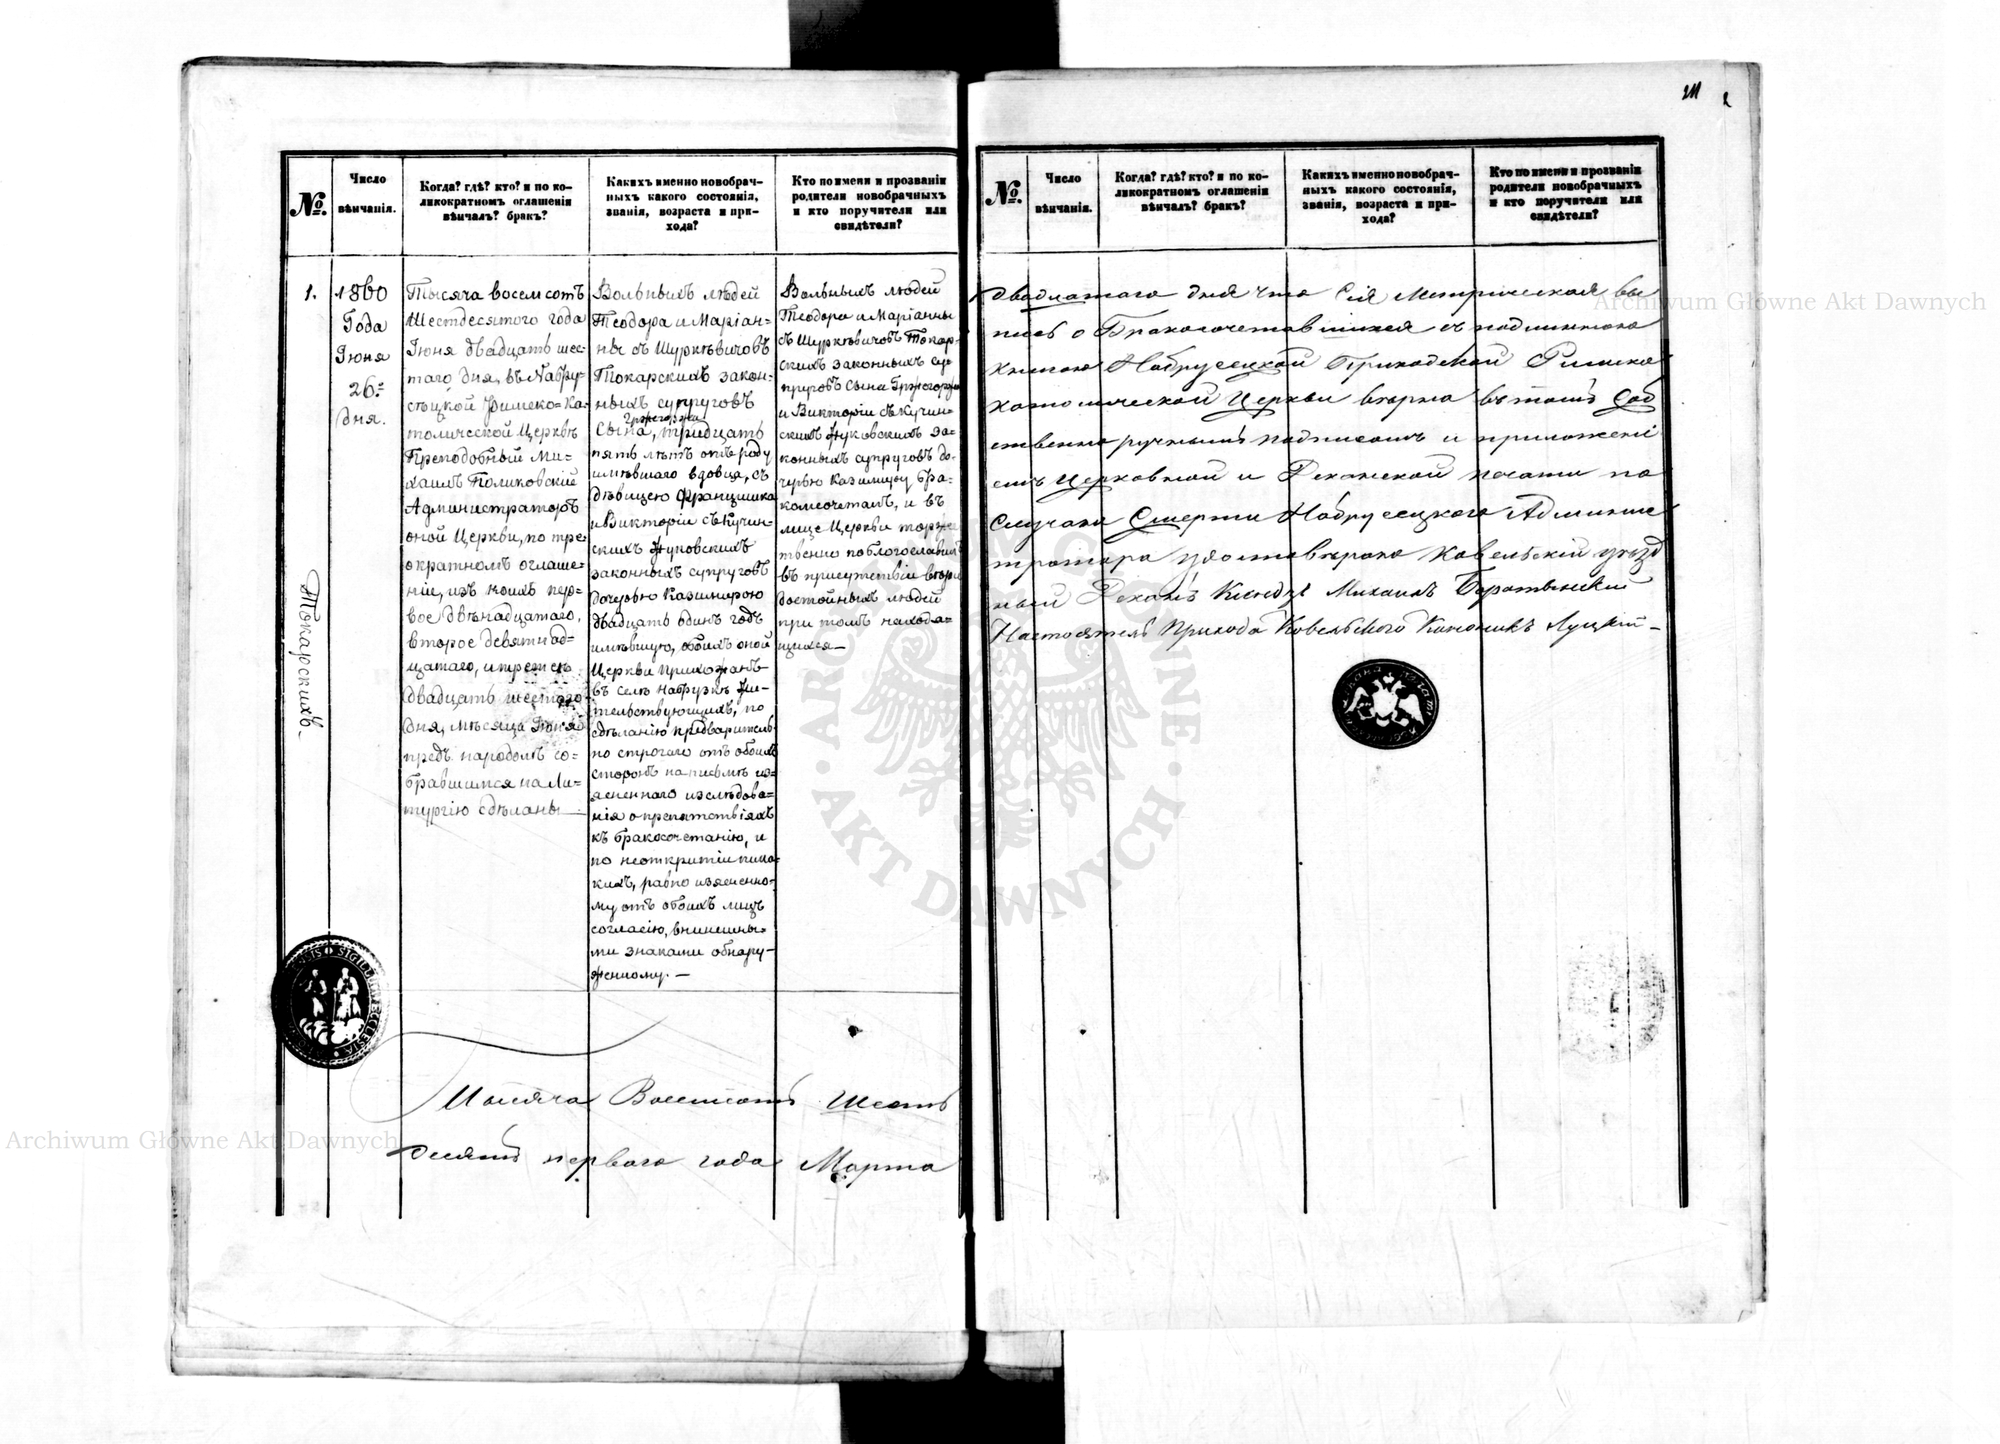 №.
Число
вѣнчанія.
Когда? гдѣ? кто? и по ко-
ликократномъ оглашеніи
вѣнчалъ? бракъ?
Какихъ именно новобрач-
ныхъ какого состоянія,
званія, возраста и при-
хода?
Кто по имени и прозванія
родители новобрачныхъ
и кто поручители или
свидѣтели?
1.
1860
Года
Іюня
26=
дня.
Токарскихъ
Тысяча восемсотъ
Шестдесятого года
Іюня двадцать шес-
таго дня, въ Набру-
сѣцкой Римско=Ка-
толической Церквѣ
Преподобный Ми-
хаилъ Поликовскій
Администраторъ
оной Церкви, по тре-
ократномъ оглаше-
ніи, изъ коихъ пер-
вое двѣнадцатаго,
второе девятнад-
цатаго, и третее
двадцать шестого
дня, мѣсяца Іюня
предъ народомъ со-
бравшимся на Ли-
тургію сдѣланы
Вольныхъ людей
Теодора и Маріан-
ны съ Шуркѣвичовъ
Токарскихъ закон-
ныхъ супруговъ
Гржегоржа
Сына, тридцать
пять лѣтъ отъ роду
имѣвшаго вдовца, съ
дѣвицею Францишка
и Викторіи съ Кучин-
скихъ Жуковскихъ
законныхъ супруговъ
дочерью Казимирою
двадцать одинъ годъ
имѣвшую, обоихъ оной
Церкви Прихожанъ
въ селѣ Набрузкѣ жи-
тельствующихъ, по
сдѣланію предваритель-
но строгаго отъ обоихъ
сторонъ на письмѣ из-
ясненнаго изслѣдова-
нія о препятствіяхъ
къ бракосочетанію, и
по неоткритіи ника-
кихъ, равно изясненно-
му отъ обоихъ лицъ
согласію, внишны-
ми знаками обнару-
женному. —
Вольныхъ людей
Теодора и Маріанны
съ Шуркѣвичовъ Токар-
скихъ законныхъ су-
пруговъ Сына Гржегоржа
и Викторіи съ Кучин-
скихъ Жуковскихъ за-
конныхъ супруговъ до-
черью Казимиру бра-
комсочеталъ, и въ
лице Церкви торже
ственно поблогославилъ
въ присутствіи вѣри
достойныхъ людей
при томъ находя-
щихся —
Тысяча Восемсотъ Шесть
десятъ первого года Марта
SIGILLUM ECCLESIA
№.
Число
вѣнчанія.
Когда? гдѣ? кто? и по ко-
ликократномъ оглашеніи
вѣнчалъ? бракъ?
Какихъ именно новобрач-
ныхъ какого состоянія,
званія, возраста и при-
хода?
Кто по имени и прозваніи
родители новобрачныхъ
и кто поручители или
свидѣтели?
двадцатого дня что Сія Метрическая вы
пись о Бракосочетавшихся съ подлинною
книгою Набрусецкой Приходской Римско
католической Церкви вѣрна въ томъ Соб
ственноручнымъ подписомъ и приложені
емъ Церковной и Деканской печати по
случаю Смерти Набрусецкого Админис
тратора удостовѣряю Ковельскій уѣзд
ный Деканъ Ксендзъ Михаилъ
Настоятель Прихода Ковельского Каноникъ Луцкій —
Archiwum Główne Akt Dawnych
Archiwum Główne Akt Dawnych
ARCHIWUM GŁÓWNE · AKT DAWNYCH ·